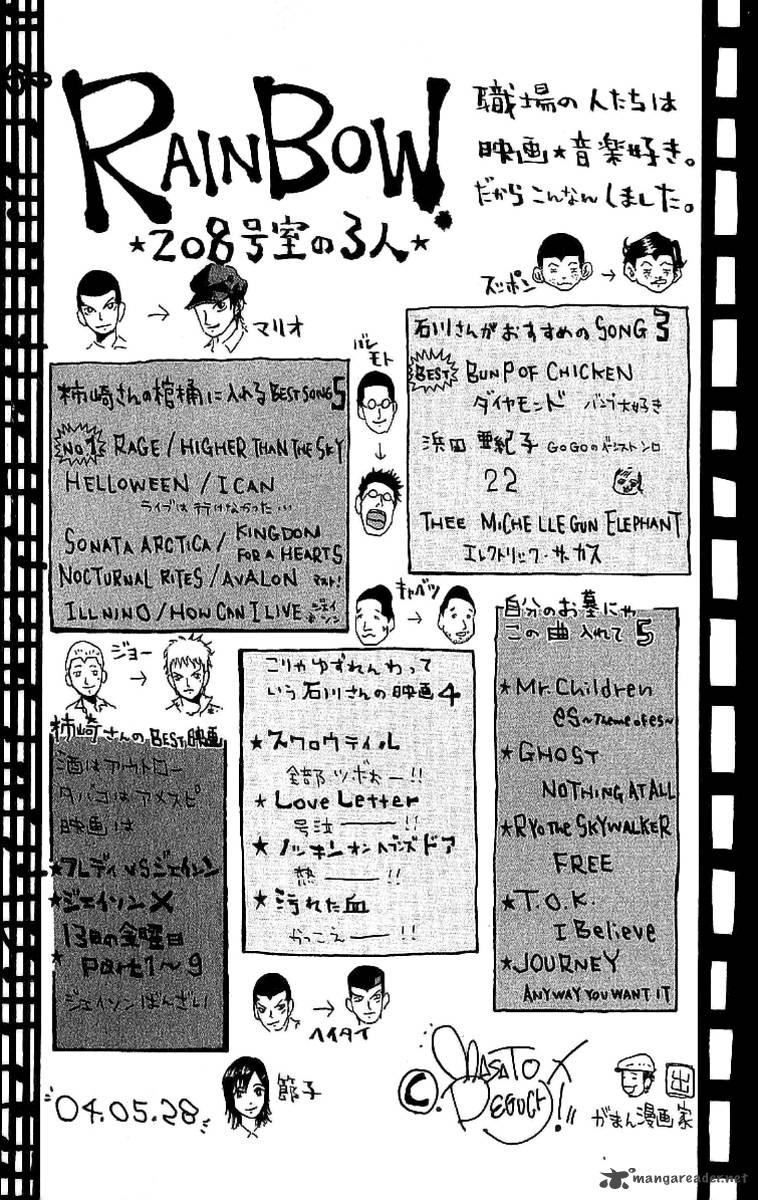 RAINBOW
★208号室の3人★
職場の人たちは
映画★音楽好き。
だからこんなんしました。
マリオ
バレモト
スッポン
柿崎さんの棺桶に入れるBEST SONG 5
NO.1 RAGE/HIGHER THAN THE SKY
HELLOWEEN/I CAN
ライブは行けなかった…
SONATA ARCTICA/KINGDON FOR A HEARTS
NOCTURNAL RITES/AVALON マスト!
ILL NINO/HOW CAN I LIVE ジェイソン
石川さんがおすすめのSONG 3
BEST BUNP OF CHICKEN
ダイヤモンド バンプ大好き
浜田亜紀子 GOGOのベーシスト ソロ
22
THEE MICHELLE GUN ELEPHANT
エレクトリック・サーカス
キャベツ
ジョー
柿崎さんのBEST映画
酒はアウトロー
タバコはアメスピ
映画は
★フレディVSジェイソン
★ジェイソンX
★13日の金曜日
Part1〜9
ジェイソンばんざい
こりゃゆずれんわって
いう石川さんの映画4
★スワロウテイル
全部ツボ大ー!!
★Love Letter
号泣――!!
★ノッキンオンヘブンズドア
熱――!!
★汚れた血
かっこえ――!!
自分のお墓にゃ
この曲入れて5
★Mr.Children
es~Theme of es~
★GHOST
NOTHING AT ALL
★RYO THE SKYWALKER
FREE
★T.O.K.
I Believe
★JOURNEY
ANYWAY YOU WANT IT
ヘイタイ
'04.05.28
節子
C. MASATO DEGUCHI!!
出
がまん漫画家
mangareader.net